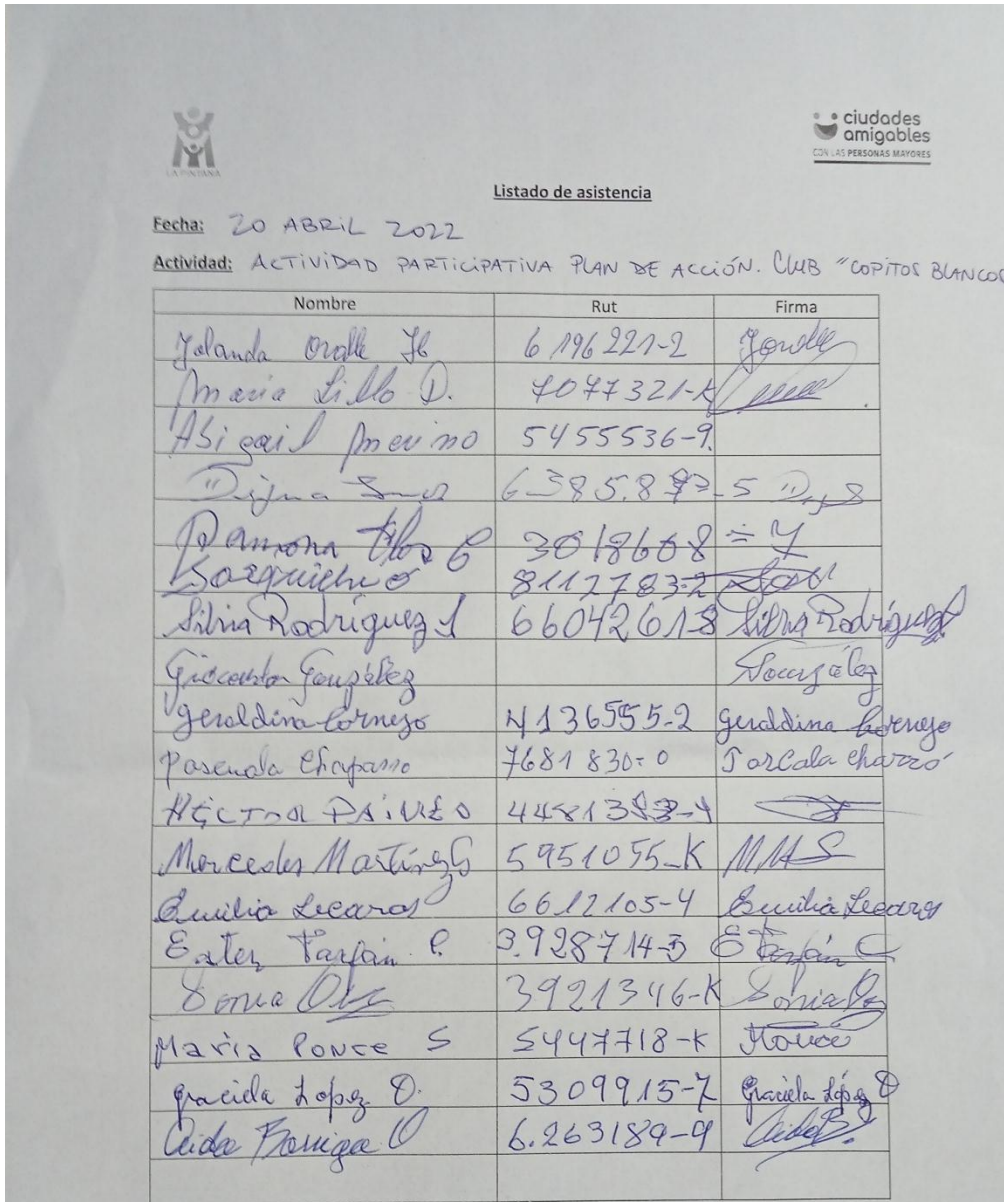 LA PINTANA
ciudades
amigables
CON LAS PERSONAS MAYORES
Listado de asistencia
Fecha: 20 ABRIL 2022
Actividad: ACTIVIDAD PARTICIPATIVA PLAN DE ACCIÓN. CLUB "COPITOS BLANCOS
Nombre Rut Firma
Yolanda Ovalle 6196221-2
Maria Lillo D. 7077321-K
Abigail Merino 5455536-9.
Digna
Ramona 3018608
8112783-2
Silvia Rodríguez S 6604261-8 Silvia Rodríguez
González González
Geraldina Cornejo 4136555-2 Geraldina Cornejo
Pascuala Chaparro 7681830-0
HÉCTOR
Mercedes Martínez G 5951055-K MMS
Emilia Lecaros 6612105-4 Emilia Lecaros
Ester Farfán C. 3.928714-3 E Farfán C
Sonia 3921346-K Sonia
Maria Ponce S 5447718-K
Graciela Lopez O. 5309915-7 Graciela López O
Aida Barriga O 6.263189-9 Aida B.